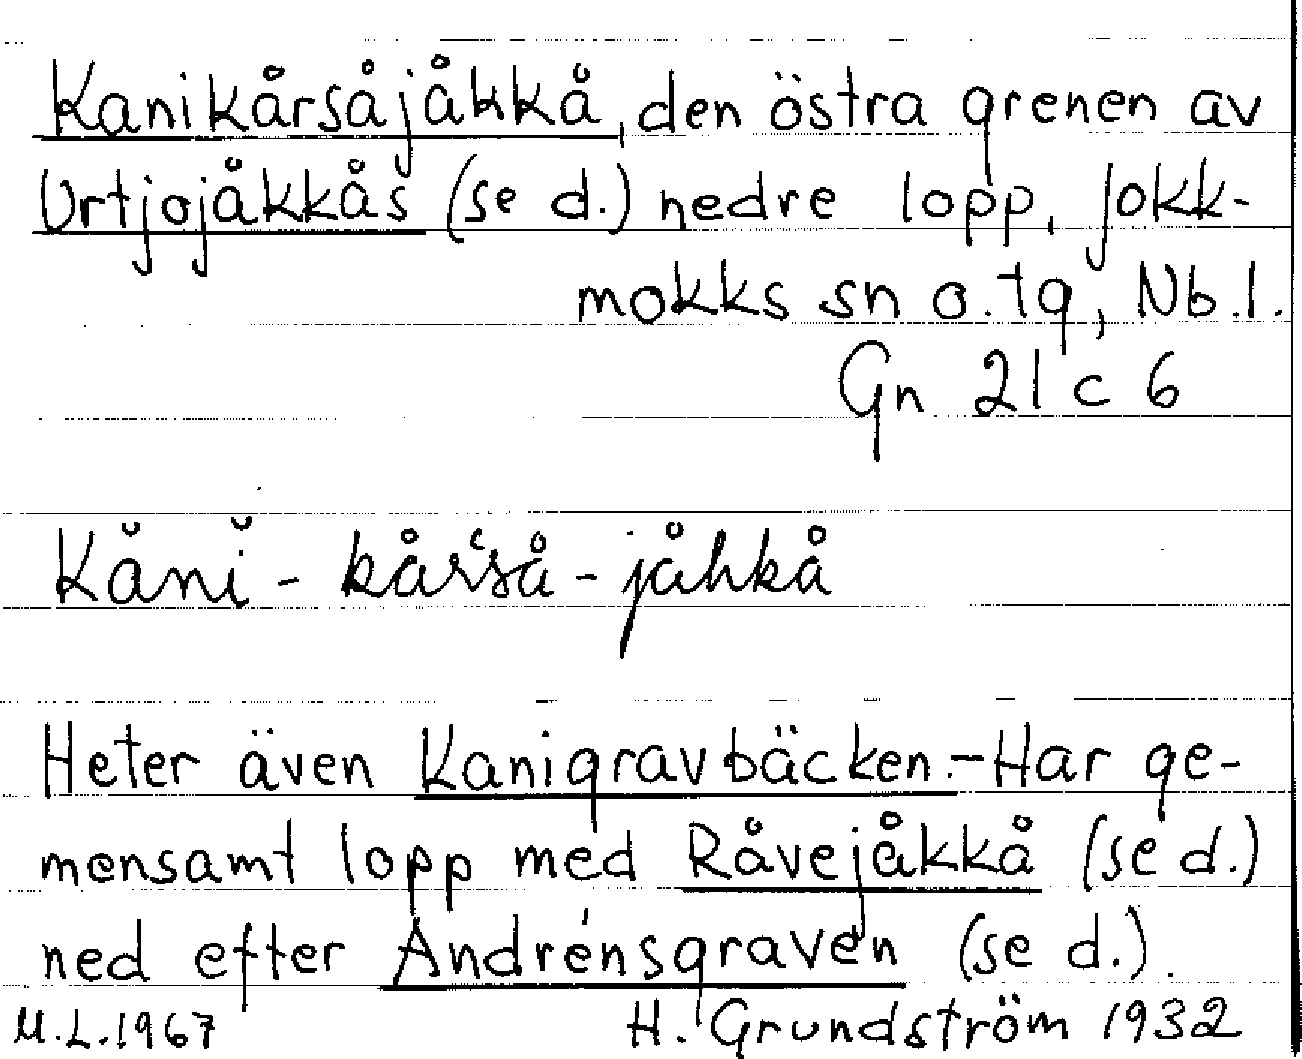 Kanikårsåjåkkå, den östra grenen av
Urtjojåkkås (se d.) nedre lopp, Jokk-
mokks sn o. tg, Nb. l.
Gn 21 c 6
Kåni̮ - kårsʻså - jåhkå
Heter även Kanigravbäcken. - Har ge-
mensamt lopp med Råvejåkkå (se d.)
ned efter Andrénsgraven (se d.).
M. L. 1967 H. Grundström 1932